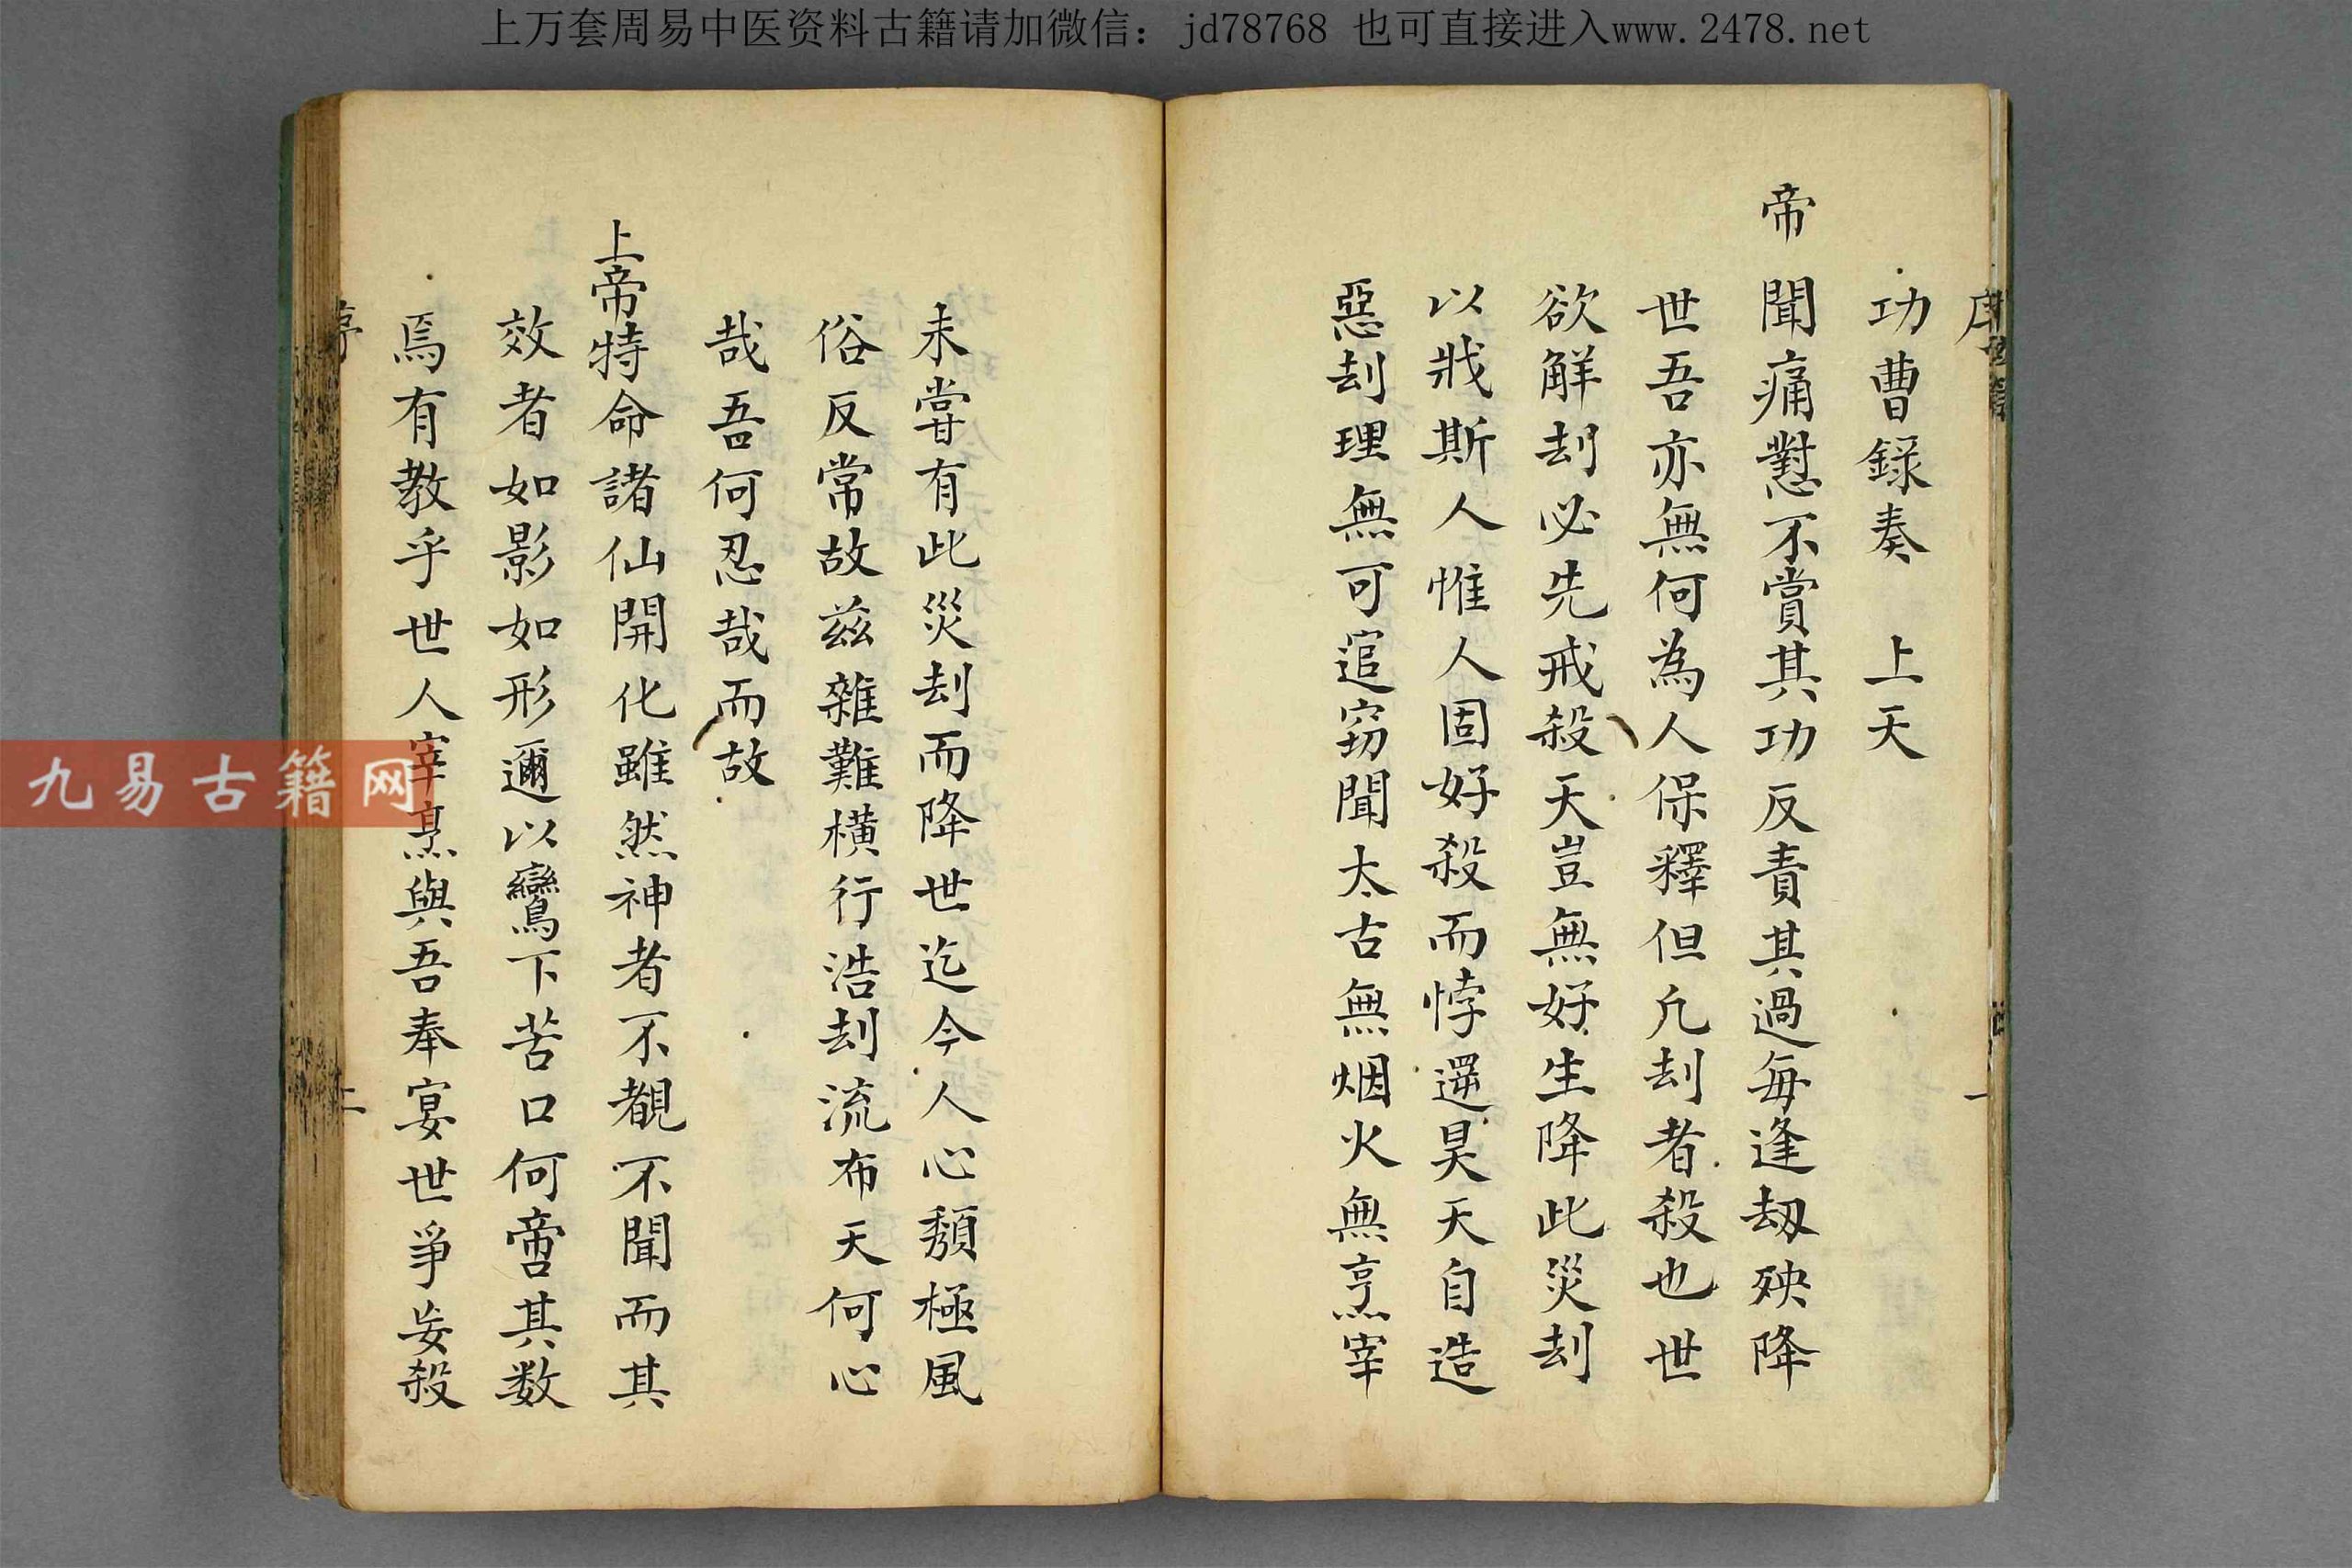 上万套周易中医资料古籍请加微信：jd78768 也可直接进入www.2478.net
功曹録奏　上天
帝聞痛懟不賞其功反責其過每逢刼殃降
世吾亦無何為人保釋但凢刦者殺也世
欲解刦必先戒殺天豈無好生降此災刦
以戕斯人惟人固好殺而悖逻昊天自造
惡刦理無可逭窃聞太古無烟火無烹宰
未甞有此災刦而降世迄今人心頽極風
俗反常故兹雜難橫行浩刦流布天何心
哉吾何忍哉而故
上帝特命諸仙開化雖然神者不覩不聞而其
效者如影如形邇以鸞下苦口何啻其数
焉有教乎世人宰烹與吾奉宴世爭妄殺
九易古籍网